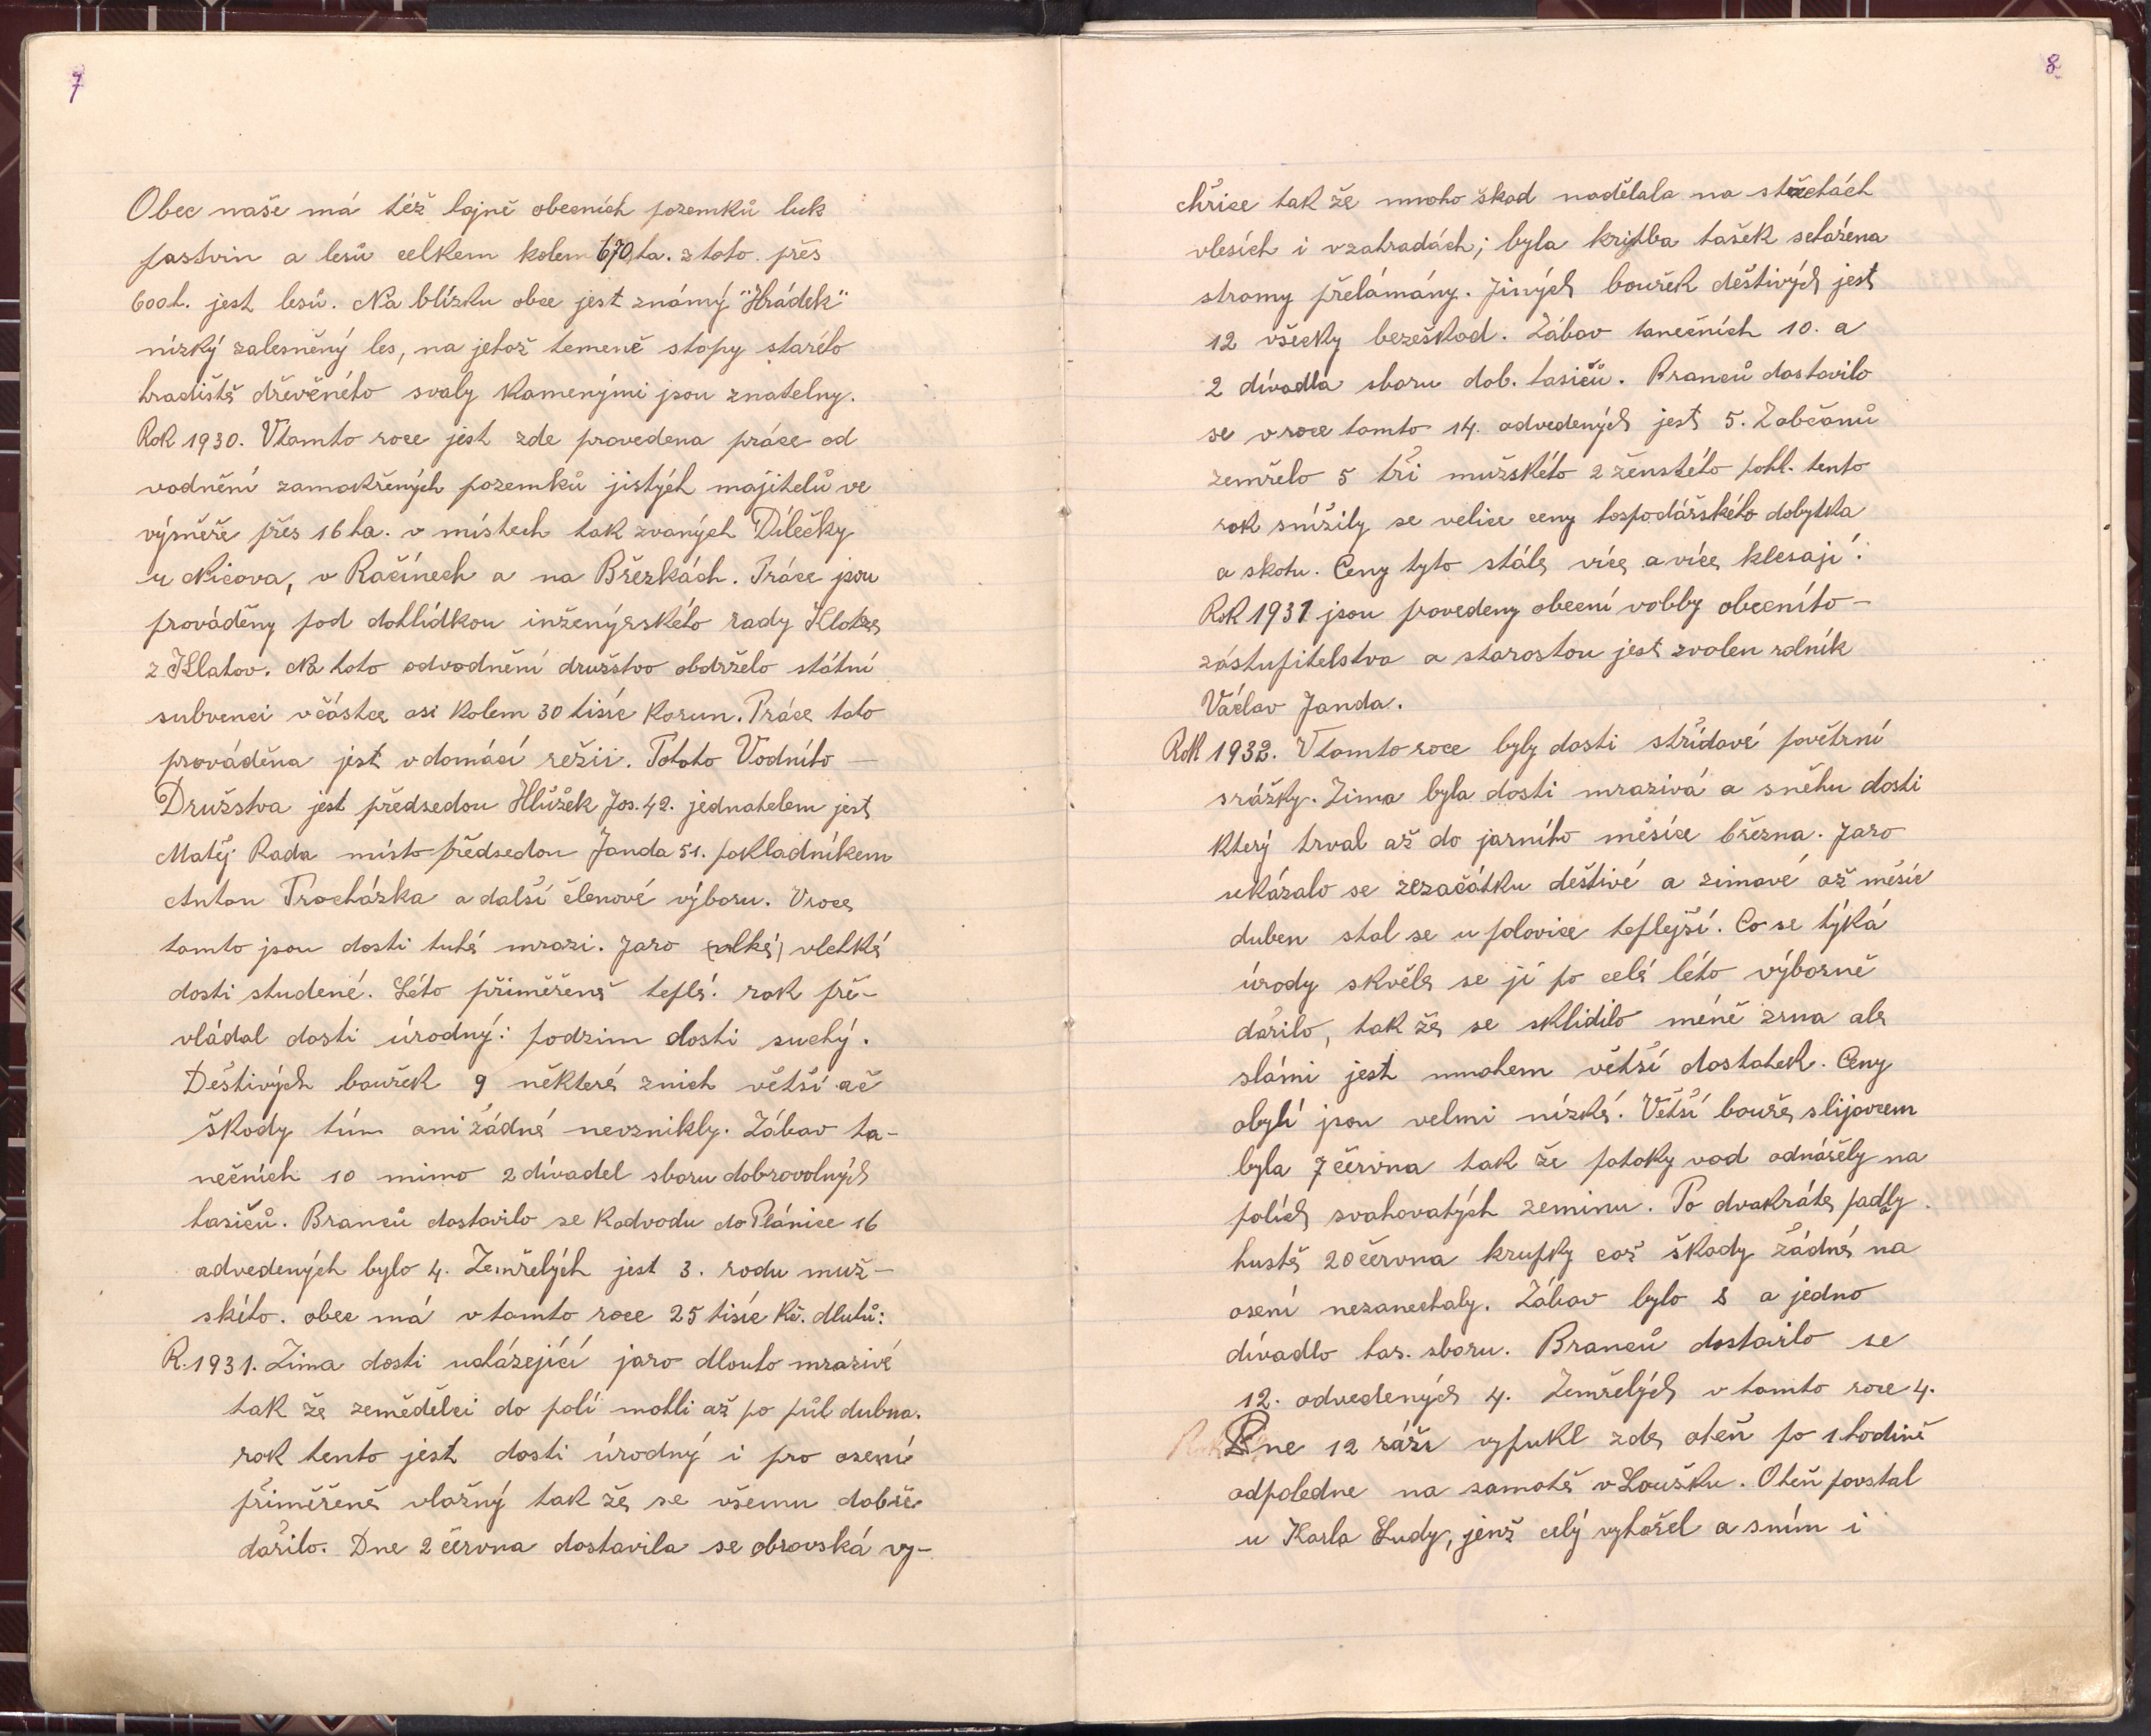 7
Obec naše má též hojně obecních pozemků luk
pastvin a lesů celkem kolem 670 ha. z toho přes
600 h. jest lesů. Na blízku obce jest známý "Hrádek"
nízký zalesněný les, na jehož temeně stopy starého
hradiště dřevěného svaly kamenými jsou znatelny.
Rok 1930. Vtomto roce jest zde provedena práce od
vodnění zamokřených pozemků jistých majitelů ve
výměře přes 16 ha. v místech tak zvaných Dílečky
u Nicova, v Račínech a na Březkách. Práce jsou
prováděny pod dohlídkou inženýrského rady Klotze
z Klatov. Na toto odvodnění družstvo obdrželo státní
subvenci včástce asi kolem 30 tisíc korun. Práce tato
prováděna jest vdomácí režii. Tohoto Vodního –
Družstva jest předsedou Hlůžek Jos. 42. jednatelem jest
Matěj Rada místo předsedou Janda 51. pokladníkem
Anton Procházka a další členové výboru. Vroce
tomto jsou dosti tuhé mrazi. Jaro (vlké) vlhké
dosti studené. Léto přiměřeně teplé. rok pře-
vládal dosti úrodný: podzim dosti suchý.
Deštivých bouřek 9 některé znich větší ač
škody tím ani žádné nevznikly. Zábav ta-
nečních 10 mimo 2 dívadel sboru dobrovolných
hasičů. Branců dostavilo se kodvodu do Plánice 16
odvedených bylo 4. Zemřelých jest 3. rodu muž-
ského. obec má vtomto roce 25 tisíc Kč. dluhů:
R. 1931. Zima dosti ucházející jaro dlouho mrazivé
tak že zemědělci do polí mohli až po půl dubna.
rok tento jest dosti úrodný i pro osení
přiměřeně vlažný tak že se všemu dobře
dařilo. Dne 2 června dostavila se obrovská vy-
8
chřice tak že mnoho škod nadělala na střechách
vlesích i vzahradách; byla kritba tašek seházena
stromy přelámány. Jiných bouřek deštivých jest
12 všecky bezeškod. Zábav tanečních 10. a
2 dívadla sboru dob. hasičů. Branců dostavilo
se vroce tomto 14. odvedených jest 5. Zobčanů
zemřelo 5 tři mužského 2 ženského pohl. tento
rok snížily se velice ceny hospodářského dobytka
a skotu. Ceny tyto stále více a více klesají.
Rok 1931 jsou povedeny obecní volby obecního –
zástupitelstva a starostou jest zvolen rolník
Václav Janda.
Rok 1932. Vtomto roce byly dosti střídavé povětrní
srážky. Zima byla dosti mrazivá a sněhu dosti
který trval až do jarního měsíce března. Jaro
ukázalo se zezačátku deštivé a zimavé až měsíc
duben stal se u polovice teplejší. Co se týká
úrody skvěle se jí po celé léto výborně
dařilo, tak že se sklidilo méně zrna ale
slámi jest mnohem větší dostatek. Ceny
obylí jsou velmi nízké. Větší bouře slijavcem
byla 7 června tak že potoky vod odnášely na
polích svahovatých zeminu. Po dvakráte padaly
hustě 20 června krupky což škody žádné na
osení nezanechaly. Zábav bylo 8 a jedno
dívadlo has. sboru. Branců dostavilo se
12. odvedených 4. Zemřelých v tomto roce 4.
Dne 12 září vypukl zde oheň po 1 hodině
odpoledne na samotě v Loušku. Oheň povstal
u Karla Ludy, jenž celý vyhořel a sním i